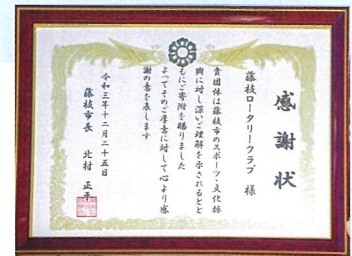 感謝状
藤枝ロータリークラブ 様
貴団体は藤枝市のスポーツ・文化振
興に対し深いご理解を示されるとと
もにご寄附を賜りました
よってそのご厚意に対して心より感
謝の意を表します
令和三年十二月二十五日
藤枝市長 北村 正平